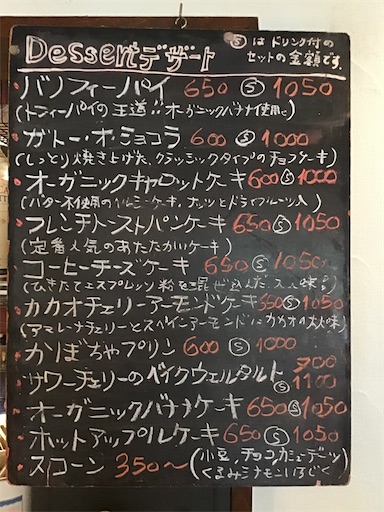 Dessertデザート
Ⓢはドリンク付の
セットの金額です。
・バノフィーパイ 650 Ⓢ 1050
(トフィーパイの王道!! オーガニックバナナ使用)
・ガトー・オ・ショコラ 600 Ⓢ 1000
(しっとり焼き上げた、クラシックタイプのチョコケーキ)
・オーガニックキャロットケーキ 600 Ⓢ 1000
(バター不使用のヘルシーケーキ。ナッツとドライフルーツ入)
・フレンチトーストパンケーキ 650 Ⓢ 1050
(定番人気のあたたかいケーキ)
・コーヒーチーズケーキ 650 Ⓢ 1050
(ひきたてエスプレッソ粉を混ぜ込んだ大人味)
・カカオチェリーアーモンドケーキ 650 Ⓢ 1050
(アマレーナチェリーとスペインアーモンドにカカオの大人味)
・かぼちゃプリン 600 Ⓢ 1000
・サワーチェリーのベイクウェルタルト 700 Ⓢ 1100
・オーガニックバナナケーキ 650 Ⓢ 1050
・ホットアップルケーキ 650 Ⓢ 1050
・スコーン 350〜 (小豆、チョコ、カシューデーツ
くるみシナモンいちじく)